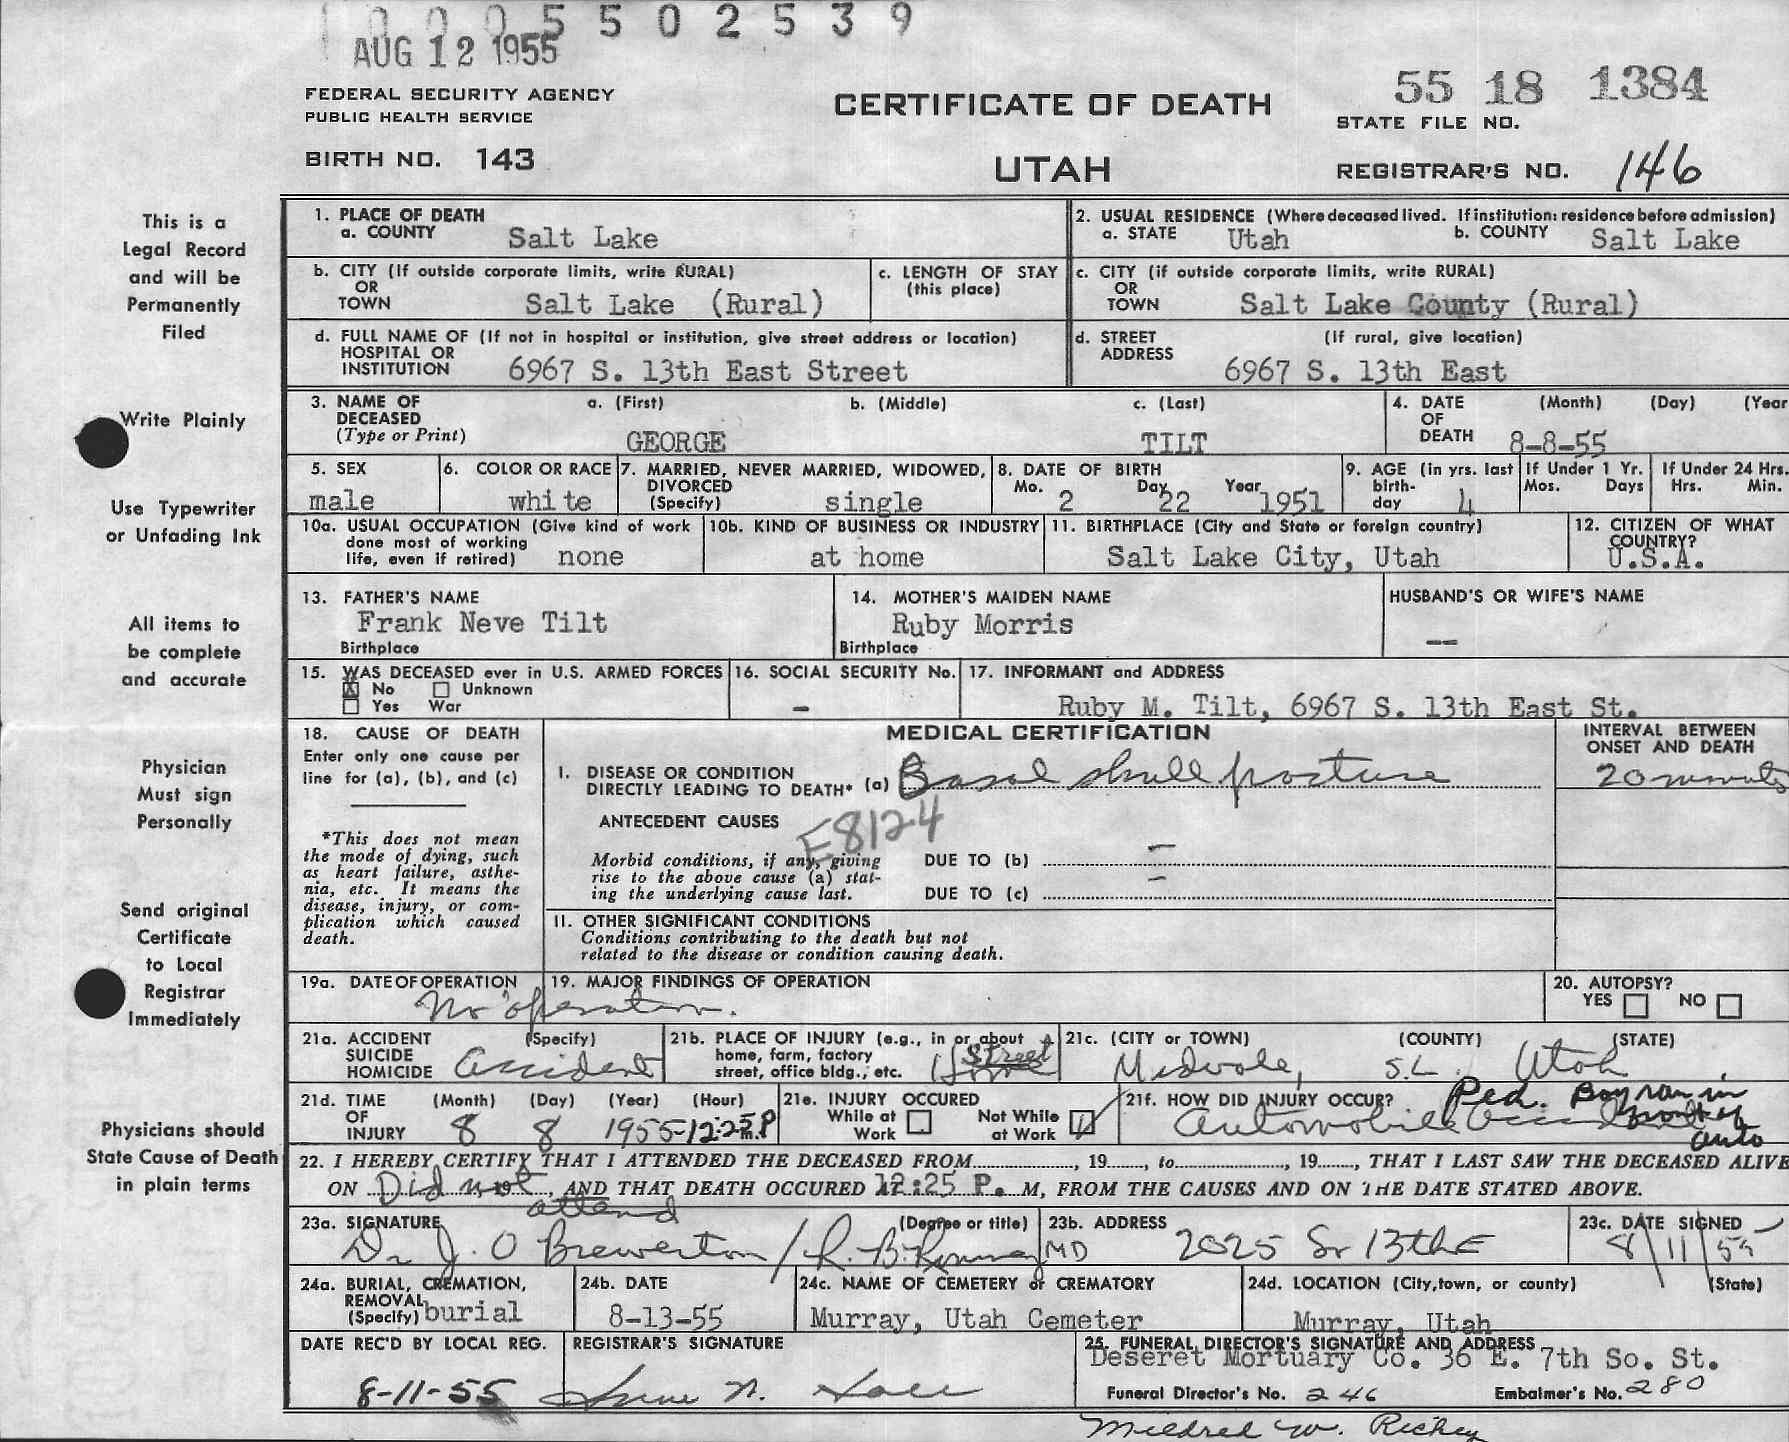 5 5 0 2 5 3 9
AUG 12 1955
FEDERAL SECURITY AGENCY
PUBLIC HEALTH SERVICE
BIRTH NO. 143
CERTIFICATE OF DEATH
UTAH
55 18 1384
STATE FILE NO.
REGISTRAR'S NO. 146
This is a
Legal Record
and will be
Permanently
Filed
Write Plainly
Use Typewriter
or Unfading Ink
All items to
be complete
and accurate
Physician
Must sign
Personally
Send original
Certificate
to Local
Registrar
Immediately
Physicians should
State Cause of Death
in plain terms
1. PLACE OF DEATH
a. COUNTY Salt Lake
2. USUAL RESIDENCE (Where deceased lived. If institution: residence before admission)
a. STATE Utah b. COUNTY Salt Lake
b. CITY (If outside corporate limits, write RURAL)
OR
TOWN Salt Lake (Rural)
c. LENGTH OF STAY
(this place)
c. CITY (if outside corporate limits, write RURAL)
OR
TOWN Salt Lake County (Rural)
d. FULL NAME OF (If not in hospital or institution, give street address or location)
HOSPITAL OR
INSTITUTION 6967 S. 13th East Street
d. STREET (If rural, give location)
ADDRESS
6967 S. 13th East
3. NAME OF a. (First) b. (Middle) c. (Last)
DECEASED
(Type or Print) GEORGE TILT
4. DATE (Month) (Day) (Year
OF
DEATH 8-8-55
5. SEX
male
6. COLOR OR RACE
white
7. MARRIED, NEVER MARRIED, WIDOWED,
DIVORCED
(Specify) single
8. DATE OF BIRTH
Mo. Day Year
2 22 1951
9. AGE (in yrs. last
birth-
day 4
If Under 1 Yr.
Mos. Days
If Under 24 Hrs.
Hrs. Min.
10a. USUAL OCCUPATION (Give kind of work
done most of working
life, even if retired) none
10b. KIND OF BUSINESS OR INDUSTRY
at home
11. BIRTHPLACE (City and State or foreign country)
Salt Lake City, Utah
12. CITIZEN OF WHAT
COUNTRY?
U.S.A.
13. FATHER'S NAME
Frank Neve Tilt
Birthplace
14. MOTHER'S MAIDEN NAME
Ruby Morris
Birthplace
HUSBAND'S OR WIFE'S NAME
—
15. WAS DECEASED ever in U.S. ARMED FORCES
No Unknown
Yes War
16. SOCIAL SECURITY No.
-
17. INFORMANT and ADDRESS
Ruby M. Tilt, 6967 S. 13th East St.
18. CAUSE OF DEATH
Enter only one cause per
line for (a), (b), and (c)
*This does not mean
the mode of dying, such
as heart failure, asthe-
nia, etc. It means the
disease, injury, or com-
plication which caused
death.
MEDICAL CERTIFICATION
I. DISEASE OR CONDITION
DIRECTLY LEADING TO DEATH* (a) Basal skull fracture
ANTECEDENT CAUSES
E8124
Morbid conditions, if any, giving
rise to the above cause (a) stat-
ing the underlying cause last.
DUE TO (b) -
DUE TO (c) -
II. OTHER SIGNIFICANT CONDITIONS
Conditions contributing to the death but not
related to the disease or condition causing death.
INTERVAL BETWEEN
ONSET AND DEATH
20 minutes
19a. DATE OF OPERATION
No operation.
19. MAJOR FINDINGS OF OPERATION
20. AUTOPSY?
YES NO
21a. ACCIDENT (Specify)
SUICIDE
HOMICIDE Accident
21b. PLACE OF INJURY (e.g., in or about
home, farm, factory
street, office bldg., etc. Home Street
21c. (CITY or TOWN) (COUNTY) (STATE)
Midvale, S.L. Utah
21d. TIME (Month) (Day) (Year) (Hour)
OF
INJURY 8 8 1955-12:25 P m.
21e. INJURY OCCURED
While at Work
Not While at Work
21f. HOW DID INJURY OCCUR?
Automobile Accident
Ped. Boy ran in
front of
auto
22. I HEREBY CERTIFY THAT I ATTENDED THE DECEASED FROM, 19, to, 19, THAT I LAST SAW THE DECEASED ALIVE
ON Did not attend, 19, AND THAT DEATH OCCURED 12:25 P. M, FROM THE CAUSES AND ON THE DATE STATED ABOVE.
23a. SIGNATURE (Degree or title)
Dr J. O Brewerton / R. B. MD
23b. ADDRESS
2025 So 13th E
23c. DATE SIGNED
8/11/55
24a. BURIAL, CREMATION,
REMOVAL
(Specify) burial
24b. DATE
8-13-55
24c. NAME OF CEMETERY or CREMATORY
Murray, Utah Cemeter
24d. LOCATION (City, town, or county) (State)
Murray, Utah
DATE REC'D BY LOCAL REG.
8-11-55
REGISTRAR'S SIGNATURE
N.
25. FUNERAL DIRECTOR'S SIGNATURE AND ADDRESS
Deseret Mortuary Co. 36 E. 7th So. St.
Funeral Director's No. 246 Embalmer's No. 280
Mildred W. Richey